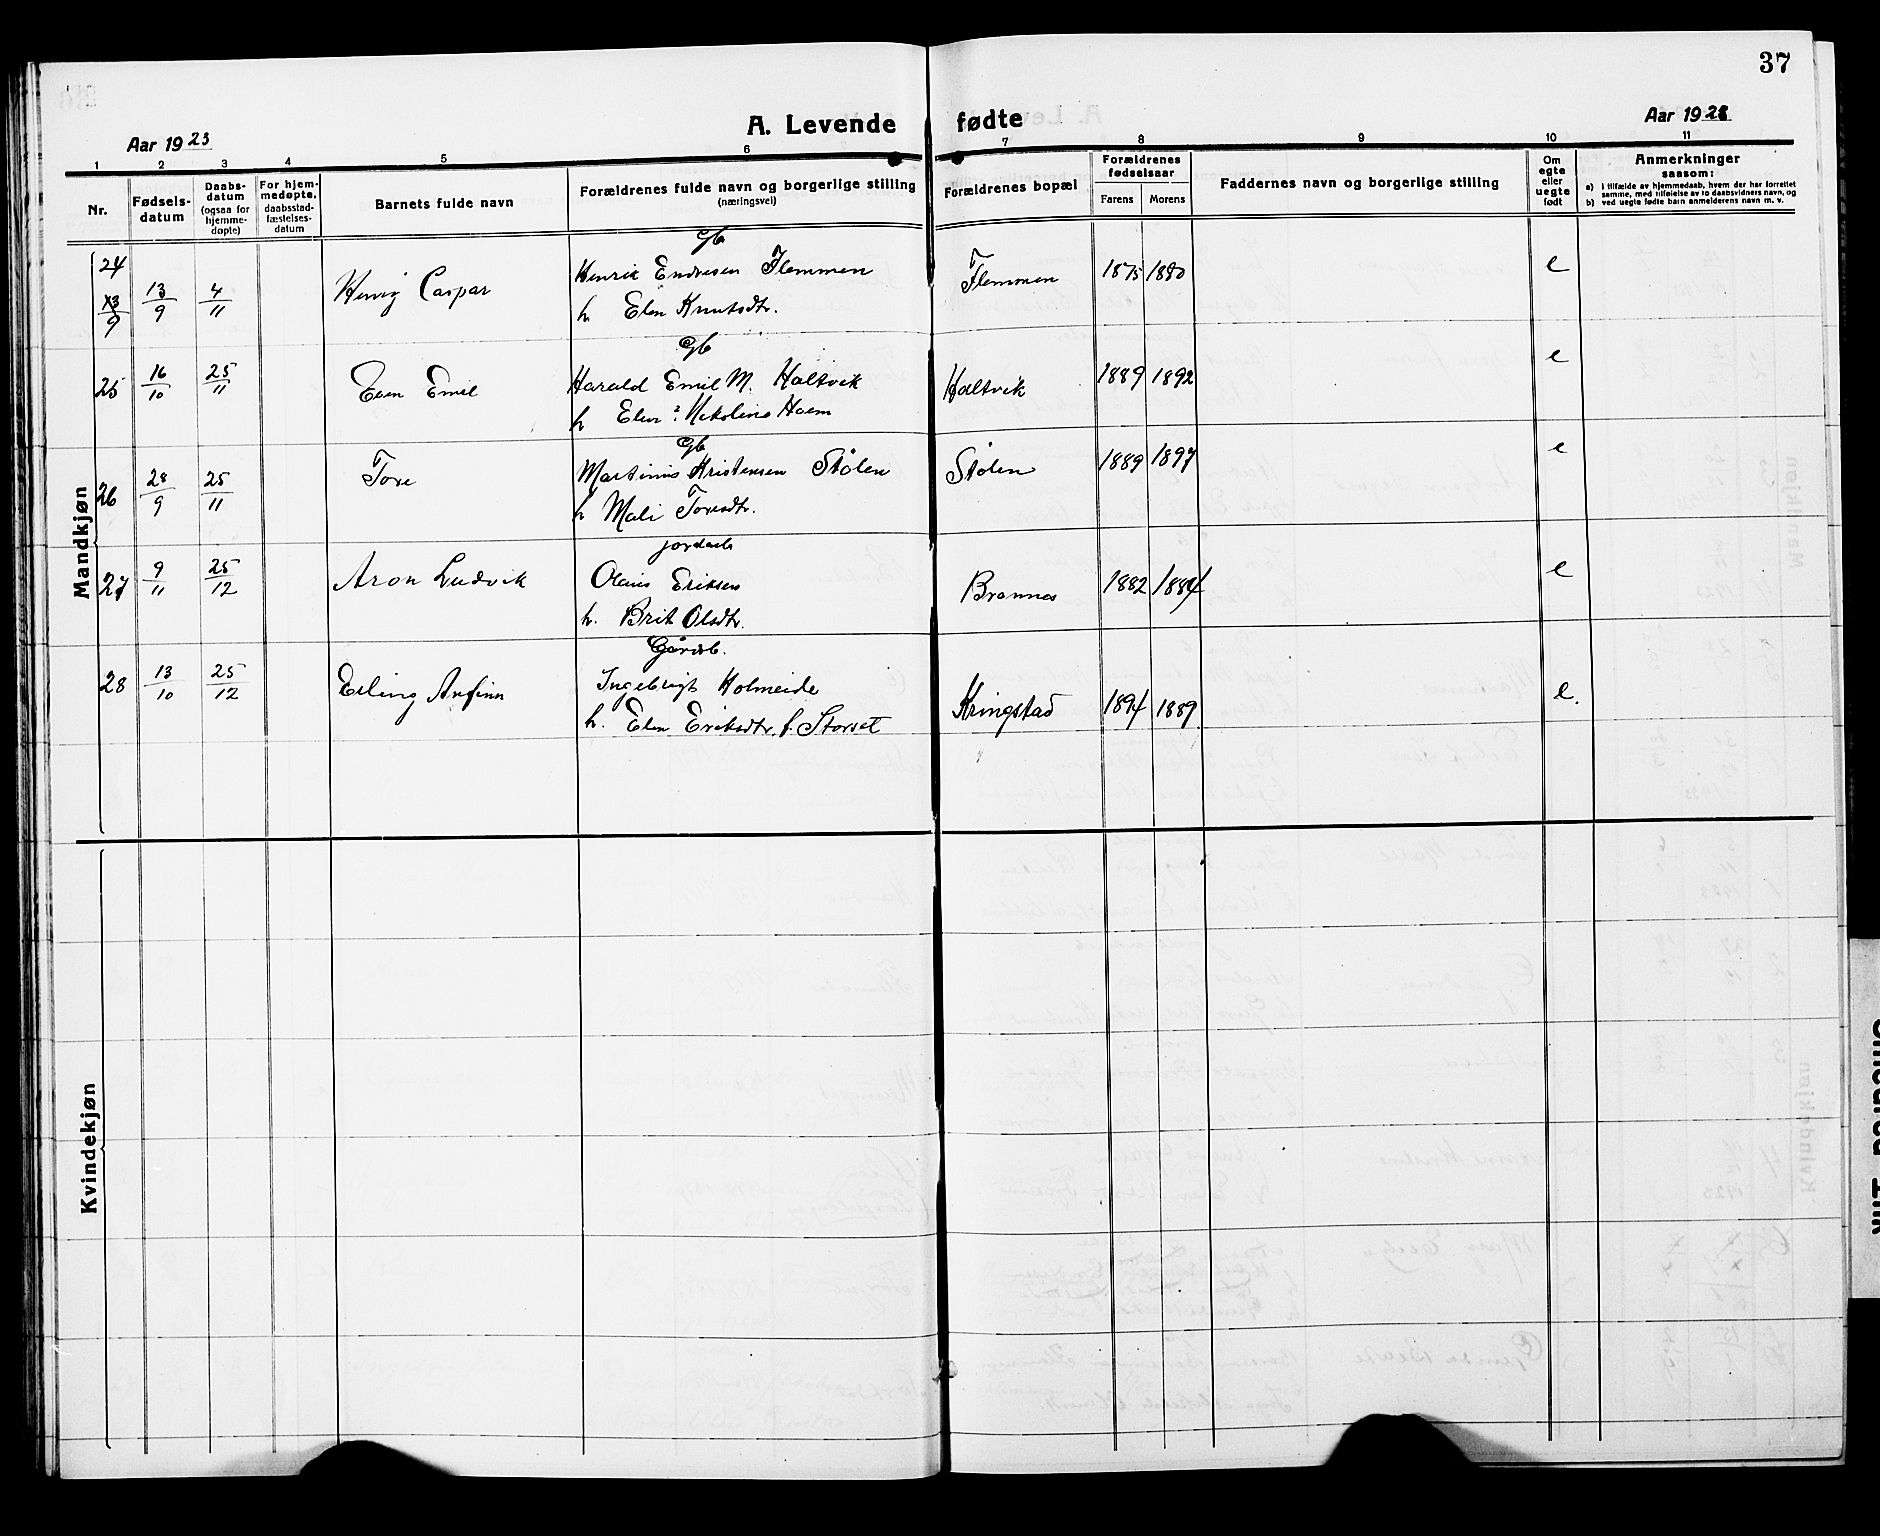 37
A. Levende fødte
Aar 1923
Aar 1923
1 2 3 4 5 6 7 8 9 10 11
Nr.
Fødsels-
datum
Daabs-
datum
(ogsaa for
hjemme-
døpte)
For hjem-
medøpte,
daabsstad-
fæstelses-
datum
Barnets fulde navn
Forældrenes fulde navn og borgerlige stilling
(næringsvei)
Forældrenes bopæl
Forældrenes
fødselsaar
Farens Morens
Faddernes navn og borgerlige stilling
Om
egte
eller
uegte
født
Anmerkninger
saasom:
a) i tilfælde av hjemmedaab, hvem der har forrettet
samme, med tilføielse av to daabsvidners navn, og
b) ved uegte fødte barn anmelderens navn m. v.
Mandkjøn
Gb
24 13/9 4/11 Henrik Endresen Flemmen Flemmen 1875 1880 e
13/9 Caspar
h. Elen Knutsdtr.
Gb
25 16/10 25/11 Emil Harald Emil M. Haltvik Haltvik 1889 1892 e
h Nikoline
Gb
26 28/9 25/11 Tore Martinus Kristensen Stølen Stølen 1889 1897 e
h Mali Toresdtr.
27 9/11 25/12 Aron Ludvik Olaus Eriksen 1882 1884 e
h. Brit Olsdtr.
Gårdb.
28 13/10 25/12 Erling Arfinn Ingebrigt Holmeide Kringstad 1894 1889 e.
h. Elen Eriksdtr. f. Storset
Kvindekjøn